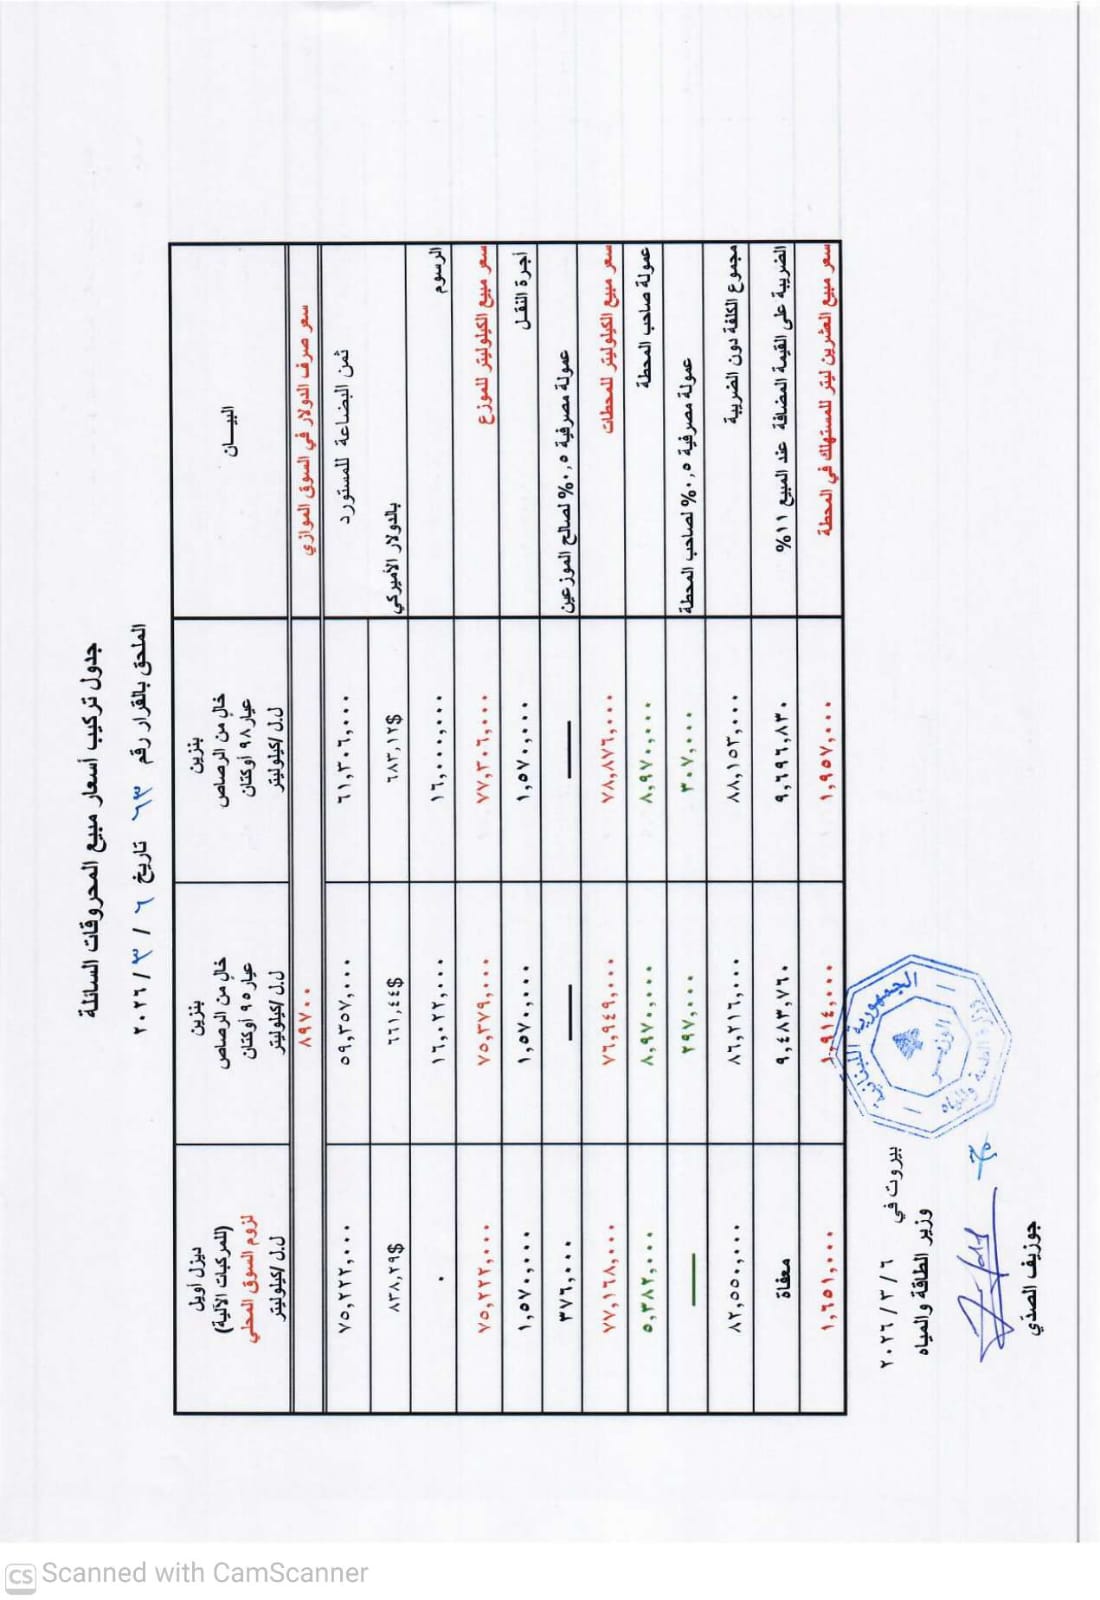 جدول تركيب أسعار مبيع المحروقات السائلة
الملحق بالقرار رقم ٦٣ تاريخ ٦ / ٣ / ٢٠٢٦
البيـــان
بنزين
خالٍ من الرصاص
عيار ٩٨ أوكتان
ل.ل/كيلوليتر
بنزين
خالٍ من الرصاص
عيار ٩٥ أوكتان
ل.ل/كيلوليتر
ديزل أويل
(للمركبات الآلية)
لزوم السوق المحلي
ل.ل/كيلوليتر
سعر صرف الدولار في السوق الموازي ٨٩٧٠٠
ثمن البضاعة للمستورد ٦١,٣٠٦,٠٠٠ ٥٩,٣٥٧,٠٠٠ ٧٥,٢٢٢,٠٠٠
بالدولار الأميركي ٦٨٣,١٢$ ٦٦١,٤٤$ ٨٣٨,٢٩$
الرسوم ١٦,٠٠٠,٠٠٠ ١٦,٠٢٢,٠٠٠ ٠
سعر مبيع الكيلوليتر للموزع ٧٧,٣٠٦,٠٠٠ ٧٥,٣٧٩,٠٠٠ ٧٥,٢٢٢,٠٠٠
أجرة النقـل ١,٥٧٠,٠٠٠ ١,٥٧٠,٠٠٠ ١,٥٧٠,٠٠٠
عمولة مصرفية ٠,٥% لصالح الموزعين — — ٣٧٦,٠٠٠
سعر مبيع الكيلوليتر للمحطات ٧٨,٨٧٦,٠٠٠ ٧٦,٩٤٩,٠٠٠ ٧٧,١٦٨,٠٠٠
عمولة صاحب المحطة ٨,٩٧٠,٠٠٠ ٨,٩٧٠,٠٠٠ ٥,٣٨٢,٠٠٠
عمولة مصرفية ٠,٥% لصاحب المحطة ٣٠٧,٠٠٠ ٢٩٧,٠٠٠ —
مجموع الكلفة دون الضريبة ٨٨,١٥٣,٠٠٠ ٨٦,٢١٦,٠٠٠ ٨٢,٥٥٠,٠٠٠
الضريبة على القيمة المضافة عند المبيع ١١% ٩,٦٩٦,٨٣٠ ٩,٤٨٣,٧٦٠ معفاة
سعر مبيع العشرين ليتر للمستهلك في المحطة ١,٩٥٧,٠٠٠ ١,٩١٤,٠٠٠ ١,٦٥١,٠٠٠
بيروت في ٦ / ٣ / ٢٠٢٦
وزير الطاقة والمياه
جوزيف الصدّي
الجمهورية اللبنانية
الوزير
وزارة الطاقة والمياه
CS Scanned with CamScanner